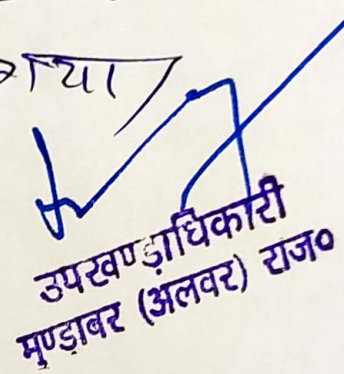 गया
उपखण्ड़ाधिकारी
मुण्ड़ावर (अलवर) राज०